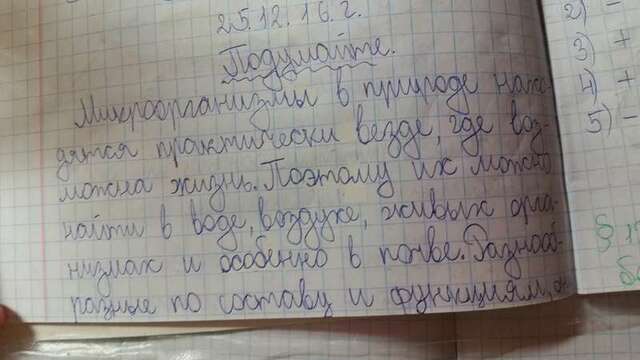 25.12.16.г.
Подумайте.
Микроорганизмы в природе нахо-
дятся практически везде, где воз-
можна жизнь. Поэтому их можно
найти в воде, воздухе, живых орга-
низмах и особенно в почве. Разнооб-
разные по составу и функциям,
2) -
3) +
4) +
5) -
§